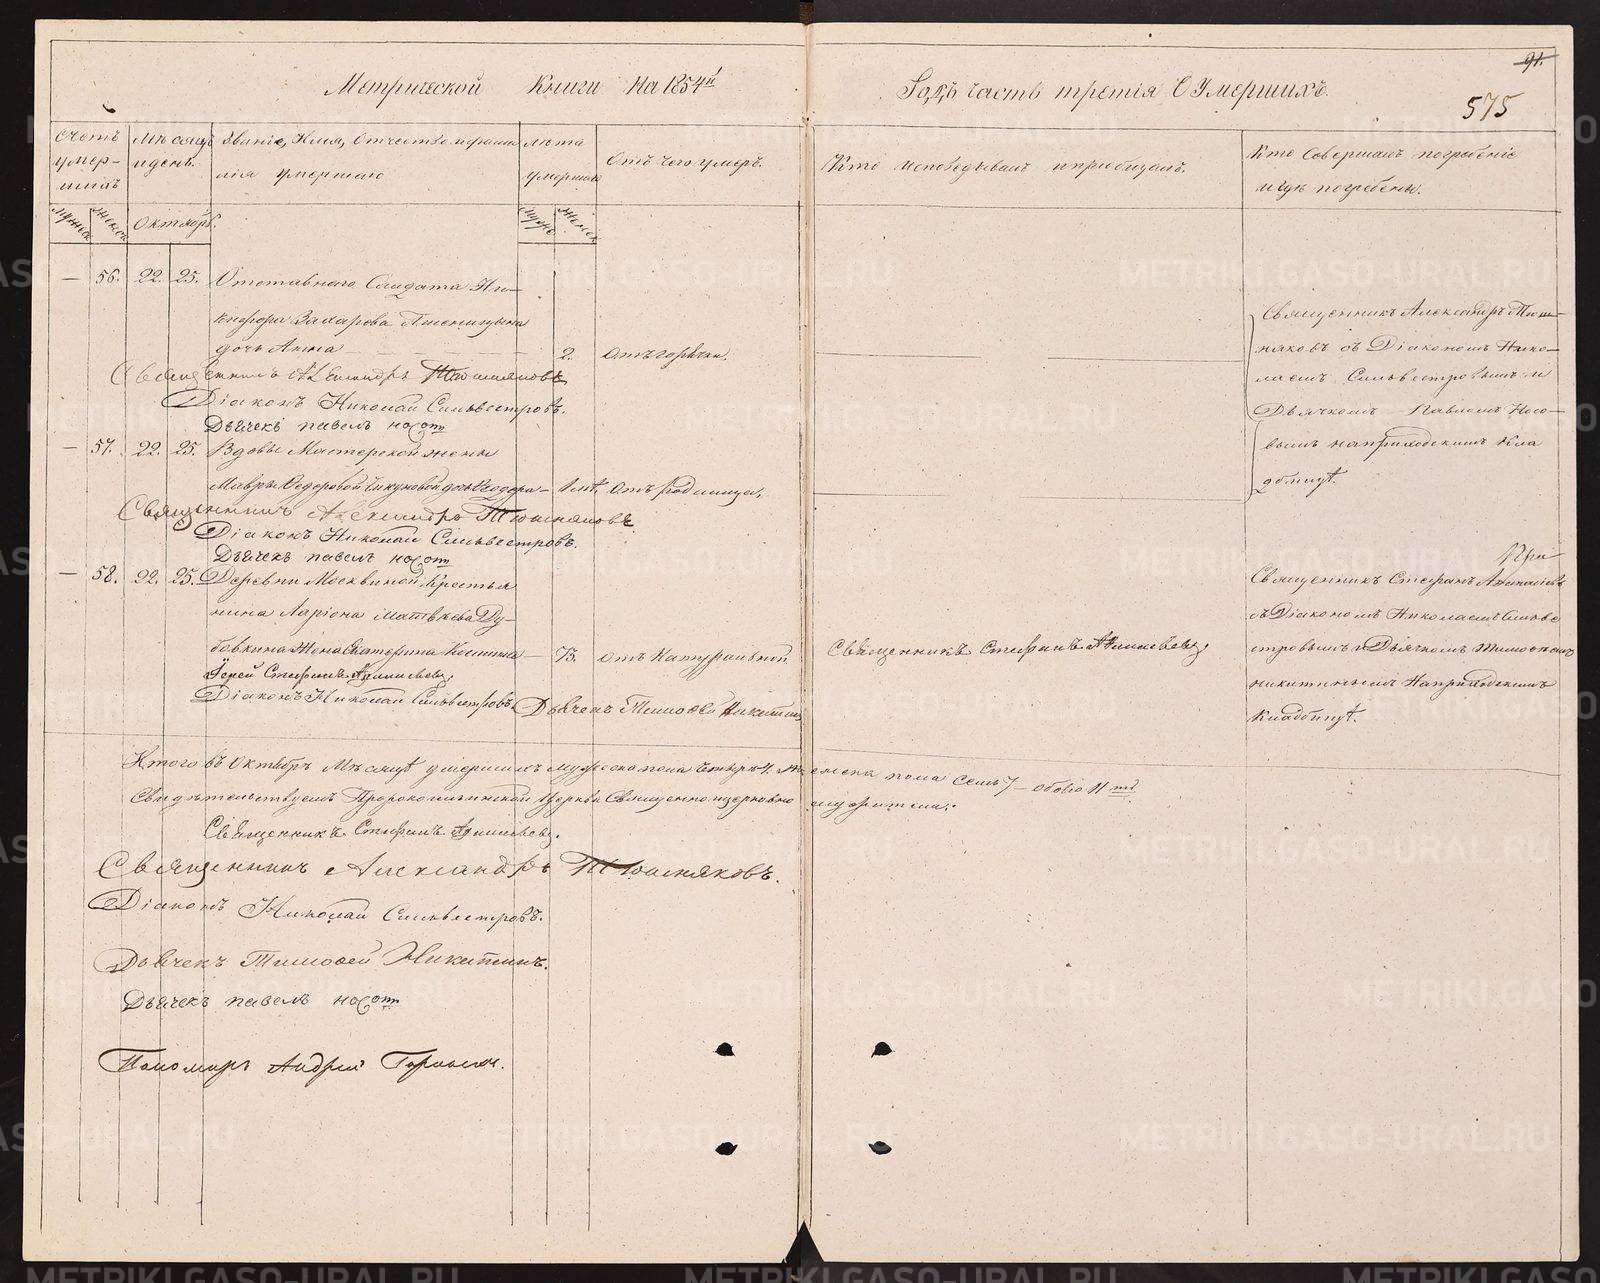 91.
575
Метрической Книги на 1854й
Годъ часть третія О Умершихъ.
Счетъ умер-шихъ
Мѣсяцъ и день.
Званіе, Имя, Отчество и фамилія умершаго
Лѣта умершаго
Отъ чего умеръ.
Кто исповѣдывалъ и пріобщалъ.
Кто Совершалъ погребеніе и гдѣ погребены.
Мужск
Женск
Октябрь.
Мужс
Женск
— 56. 22. 25. Отставнаго Солдата Ни-
кифора Захарова Пшеницына
дочь Анна 2. отъ горячки.
Священникъ Александръ Тюшняковъ
Діаконъ Николай Сильвестровъ.
Дьячекъ павелъ носовъ
Священникъ Александръ Тюш-
няковъ съ Діакономъ Нико-
лаемъ Сильвестровымъ и
Дьячкомъ Павломъ Носо-
вымъ на приходскомъ Кла
дбищѣ.
— 57. 22. 25. Вдовы Мастерской жены
Мавры Федоровой дочь Ѳеодора — отъ родимца.
Священникъ Александръ Тюшняковъ
Діаконъ Николай Сильвестровъ.
Дьячекъ павелъ носовъ
— 58. 22. 25. Деревни Москвиной Крестья
нина Ларіона Матвѣева Ду-
бовкина Жена Екатерина Козмина — 75. отъ Натуральной
Священникъ Стефанъ
Іерей Стефанъ
Діаконъ Николай Сильвестровъ. Дьячекъ Тимоѳей Никитинъ
При
Священникъ Стефанъ
съ Діакономъ Николаемъ Сильве
стровымъ и Дьячкомъ Тимоѳеемъ
никитинымъ На приходскомъ
Кладбищѣ.
Итого въ Октябрѣ Мѣсяцѣ умершихъ мужеска пола Четыре 4. Женска пола Семь 7 — обоего 11ть
Свидѣтельствуемъ Пророкоильинской Церкви Священно и церковно служители:
Священникъ Стефанъ
Священникъ Александръ Тюшняковъ.
Діаконъ Николай Сильвестровъ.
Дьячекъ Тимоѳей Никитинъ.
Дьячекъ павелъ носовъ
Пономарь Андрей
METRIKI.GASO-URAL.RU